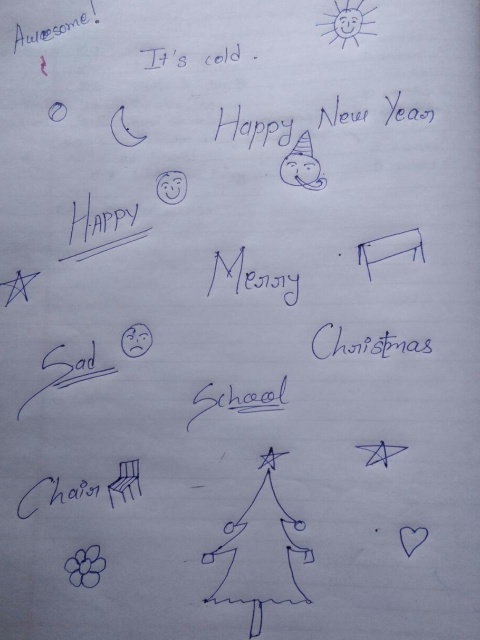 Awesome!
It's cold.
Happy New Year
HAPPY
Merry
Christmas
Sad
Schoool
Chair